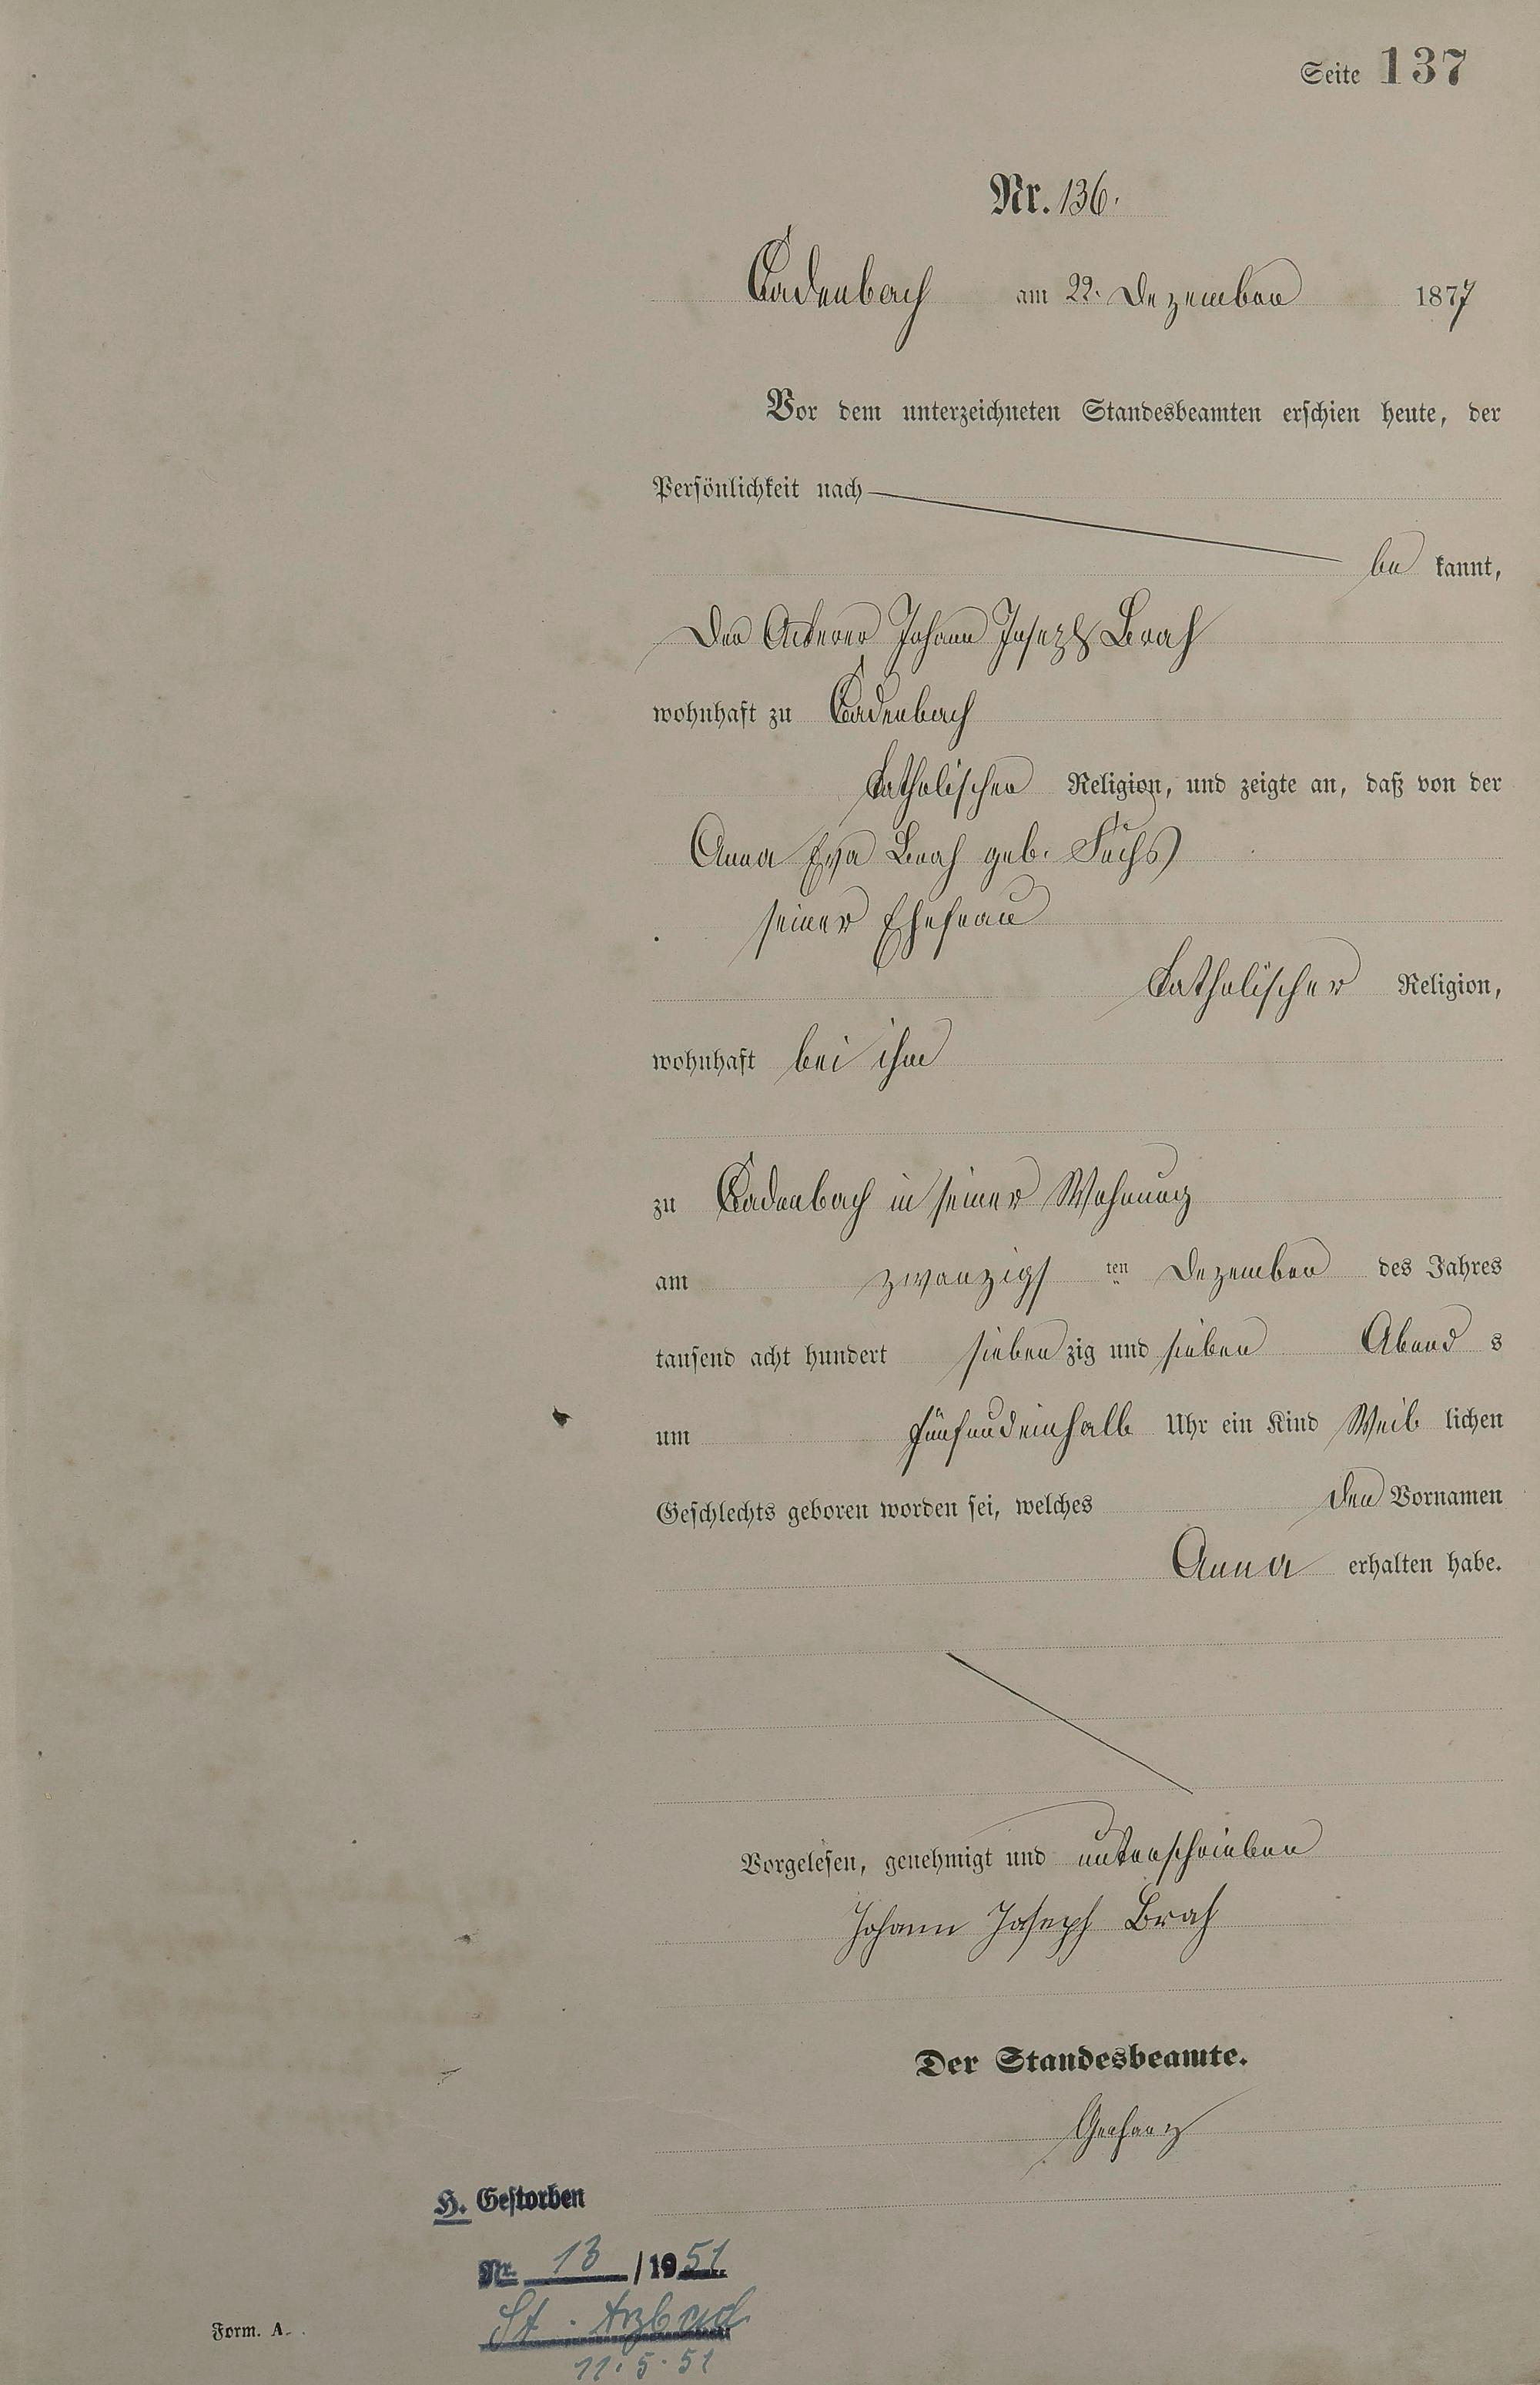 Seite 137
Nr. 136.
Cadenbach am 22. Dezember 1877
Vor dem unterzeichneten Standesbeamten erschien heute, der
Persönlichkeit nach
be kannt,
der Ackerer Johann Joseph Brah
wohnhaft zu Cadenbach
katholischer Religion, und zeigte an, daß von der
Anna Eva Brah geb. Fuchs
seiner Ehefrau
katholischer Religion,
wohnhaft bei ihm
zu Cadenbach in seiner Wohnung
am zwanzigs ten Dezember des Jahres
tausend acht hundert sieben zig und sieben Abend s
um fünfundeinhalb Uhr ein Kind Weib lichen
Geschlechts geboren worden sei, welches den Vornamen
Anna erhalten habe.
Vorgelesen, genehmigt und unterschrieben
Johann Joseph Brah
Der Standesbeamte.
H. Gestorben
Nr. 13 / 1951
St. Arzbach
11.5.51
Form. A.